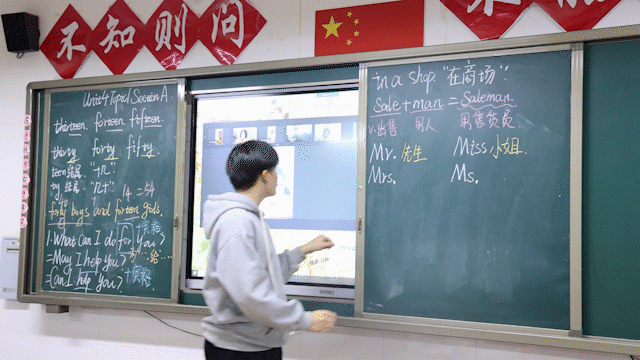 不知则问
Unit 4 Topic 1 Section A
thirteen. forteen fifteen.
thirty forty fifty.
teen结尾
ty 结尾
14 - 54
forty boys and forteen girls.
1. What Can I do for You?
=May I help You?
=Can I help You?
in a shop "在商场":
Sale+man = Saleman.
v.出售 男人 男售货员.
Mr. 先生 Miss 小姐.
Mrs. Ms.